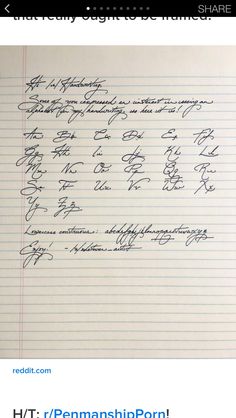 that really ought to be framed!
SHARE
Hi /r/Handwriting,
Some of you expressed an interest in seeing an
alphabet for my handwriting so here it is!
Aa Bb Cc Dd Ee Ff
Gg Hh Ii Jj Kk Ll
Mm Nn Oo Pp Qq Rr
Ss Tt Uu Vv Ww Xx
Yy Zz
Lowercase continuous: abcdefghijklmnopqrstuvwxyz
Enjoy! - /u/
reddit.com
H/T: r/PenmanshipPorn!